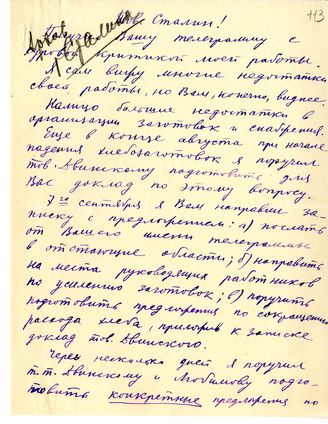 113
Тов. Сталин!
Вашу телеграмму с
суровой критикой моей работы.
Я сам вижу многие недостатки
своей работы, но Вам, конечно, виднее.
Налицо большие недостатки в
организации заготовок и снабжения.
Еще в конце августа при начале
падения хлебозаготовок я поручил
тов. Двинскому подготовить для
Вас доклад по этому вопросу.
7го сентября я Вам направил за-
писку с предложением: а) послать
от Вашего имени телеграммы
в отстающие области; б) направить
на места руководящих работников
по усилению заготовок; в) поручить
подготовить предложения по сокращению
расхода хлеба, приложив к записке
доклад тов. Двинского.
Через несколько дней я поручил
т.т. Двинскому и Любимову подго-
товить конкретные предложения по